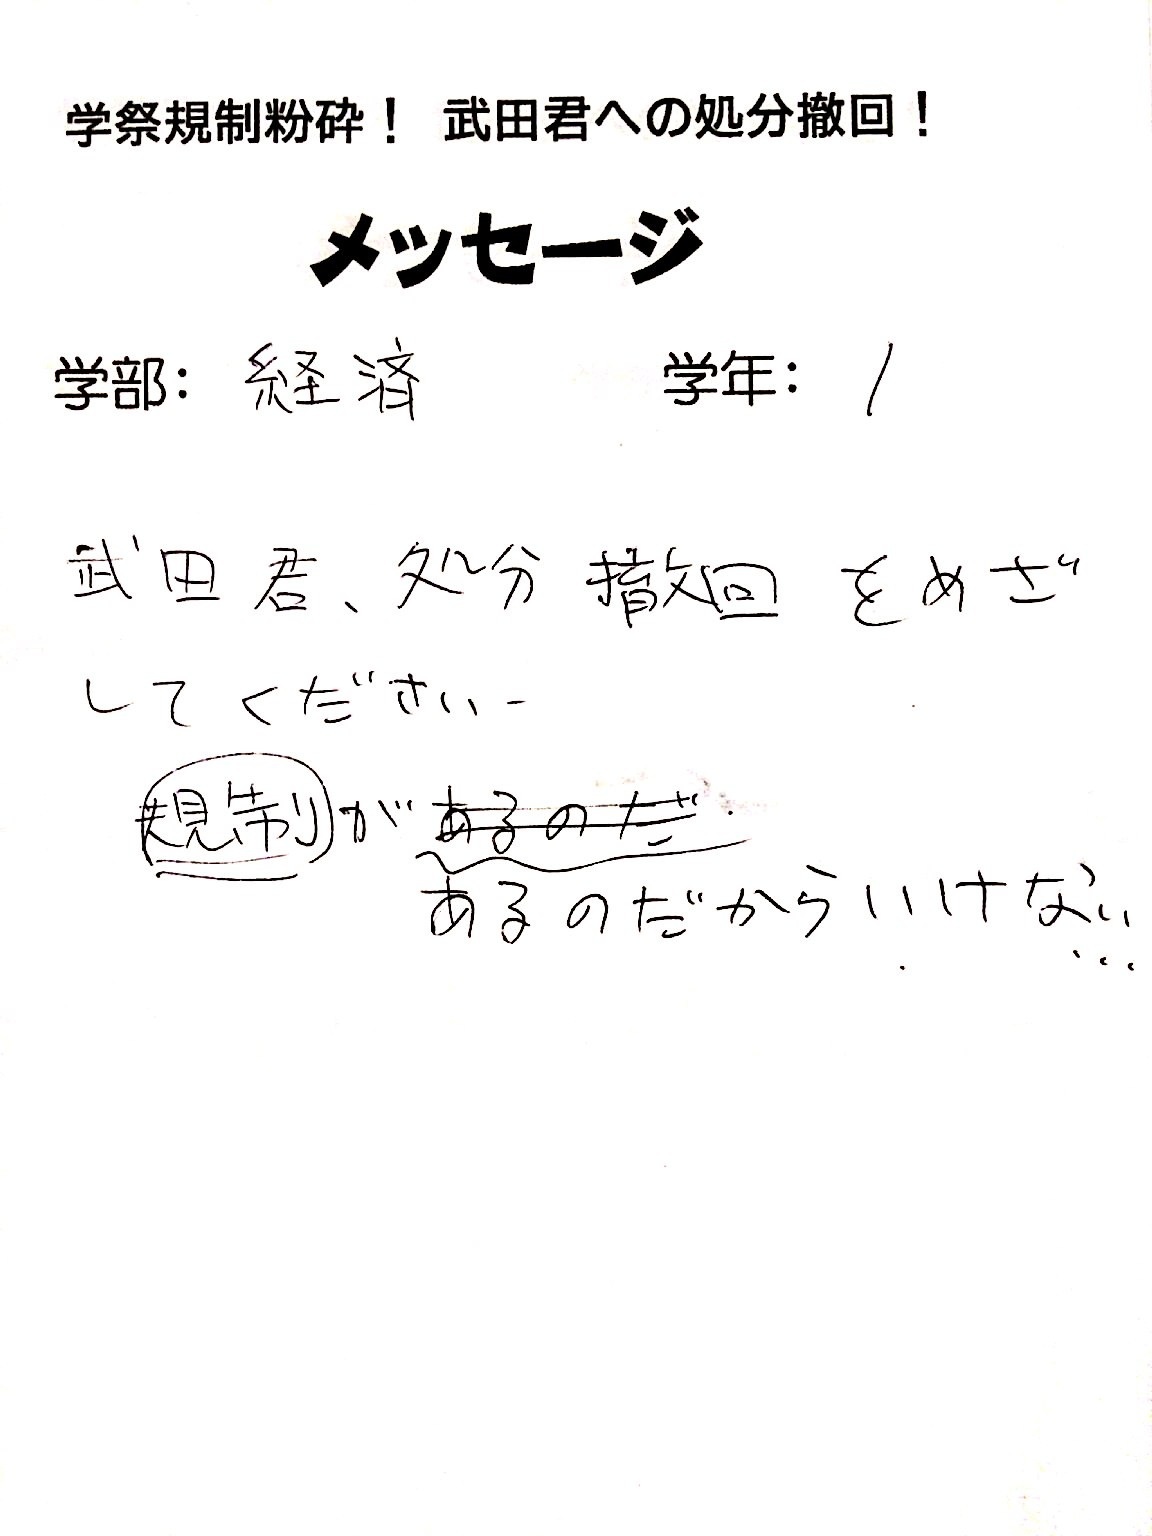 学祭規制粉砕！ 武田君への処分撤回！
メッセージ
学部： 経済 学年： 1
武田君、処分撤回をめざ
してください-
規制があるのだ
あるのだからいけない
...